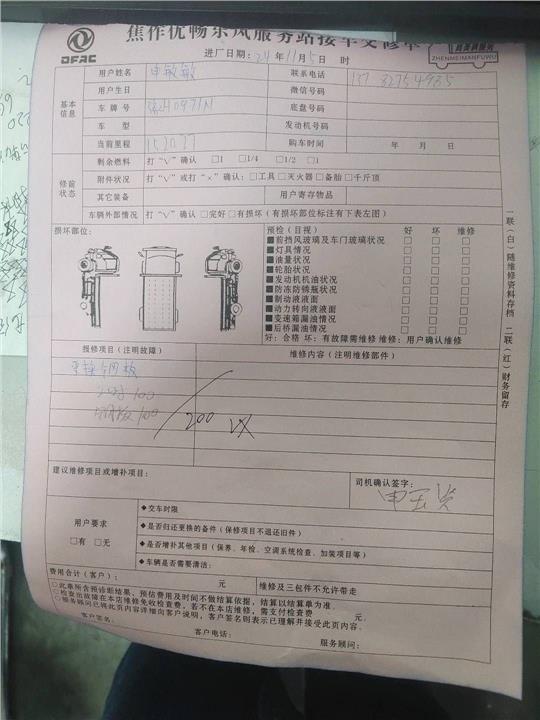 焦作优畅东风服务站接车交修单
DFAC
ZHENMEIMANFUWU
进厂日期: 24 年 11 月 5 日 时
基本信息
用户姓名 申敏敏 联系电话
用户生日 微信号码
车牌号 底盘号码
车型 发动机号码
当前里程 购车时间 年 月 日
修前状态
剩余燃料 打“V”确认 □1 □1/4 □1/2 □1
附件状况 打“V”或打“×”确认: □工具 □灭火器 □备胎 □千斤顶
其它装备 用户寄存物品
车辆外部情况 打“V”确认 □完好 □有损坏 (有损坏部位标注有下表左图)
损坏部位:
预检 (目视) 好 坏 维修
■前挡风玻璃及车门玻璃状况 □ □ □
■灯具情况 □ □ □
■油量状况 □ □ □
■轮胎状况 □ □ □
■发动机机油状况 □ □ □
■防冻防锈瓶状况 □ □ □
■制动液液面 □ □ □
■动力转向液液面 □ □ □
■变速箱漏油情况 □ □ □
■后桥漏油情况 □ □ □
好: 合格 坏: 有故障需维修 维修: 用户确认维修
报修项目 (注明故障) 维修内容 (注明维修部件)
100
100
200
建议维修项目或增补项目:
司机确认签字:
用户要求
□有 □无
◆交车时限
◆是否归还更换的备件 (保修项目不退还旧件)
◆是否增补其他项目 (保养、年检、空调系统检查、加装项目等)
◆车辆是否需要清洁:
费用合计 (客户): 元 维修及三包件不允许带走
○此单所含预诊断结果、预估费用及时间不做结算依据, 结算以结算单为准.
○检查出故障在本店维修免收检查费, 若不在本店维修, 需支付检查费 元.
○服务顾问已将此页内容详细向客户说明, 客户签名则表示已理解并接受此页内容.
客户签名: 客户电话: 服务顾问:
一联 (白) 随维修资料存档 二联 (红) 财务留存